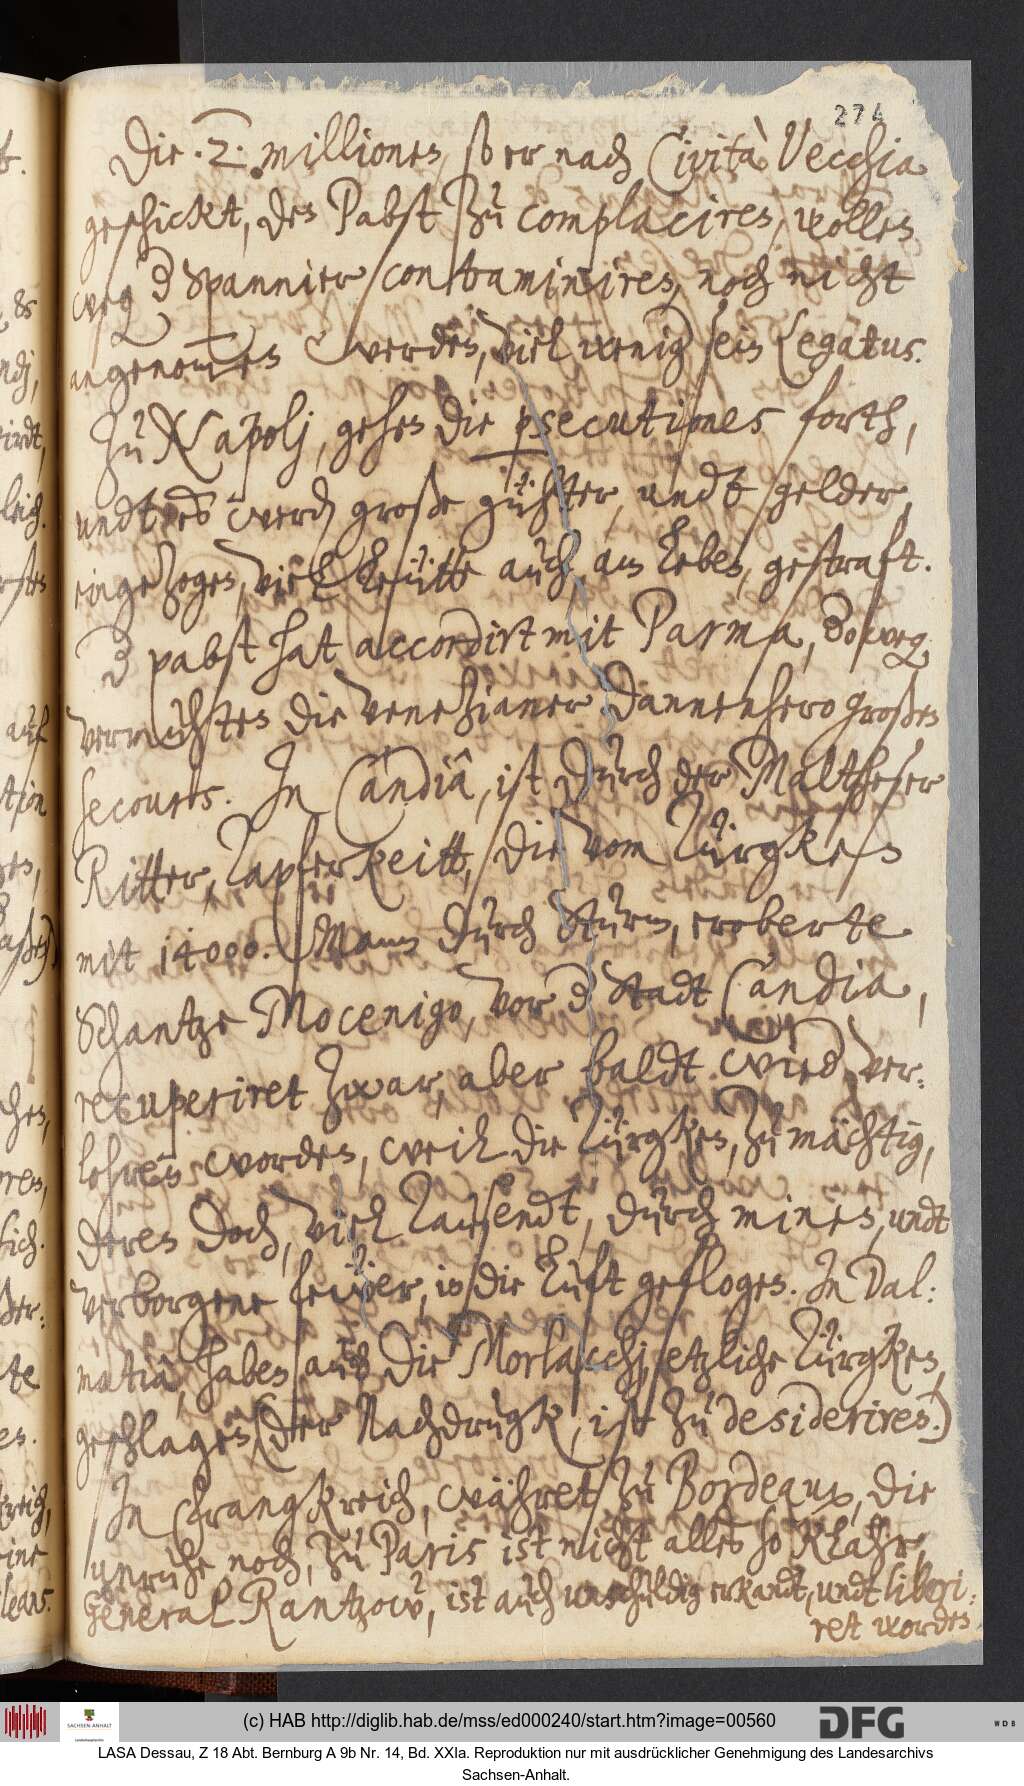 274
Die .2. millionen, so er nach Cività Vecchia
geschickt, den Pabst zu complaciren, wollen
weg d Spannier contraminiren, noch nicht
angenommen werden, viel wenig sein Legatus.
Zu Napolj, gehen die psecutiones forth,
undt es werd große gühter, undt gelder,
eingezogen, viel leütte auch am leben, gestraft.
d pabst hat accordirt mit Parma, doweg
verwahrten die Venezianer dannenhero großen
secours. In Candiâ, ist durch der Maltheser
Ritter, Tapferkeitt, die vom Türgken
mit 14000. Mann durch Sturm, eroberte
Schantze Mocenigo, vor d Stadt Candia,
recuperiret zwar, aber baldt wied ver:
lohren worden, weil die Türgken, zu mächtig,
deren doch, viel Tausendt, durch minen, undt
verborgene feüer, in die Luft geflogen. In Dal:
matiâ, haben auch die Morlacchj, etzliche Türgken,
geschlagen (der Nachdrugk, ist zu desideriren.)
In Frangkreich, währet zu Bordeaux, die
unruhe noch, zu Paris ist nicht alles so klahr,
General Rantzow, ist auch unschuldig erkandt, undt liberi:
ret worden
(c) HAB http://diglib.hab.de/mss/ed000240/start.htm?image=00560
SACHSEN-ANHALT
DFG
WDB
LASA Dessau, Z 18 Abt. Bernburg A 9b Nr. 14, Bd. XXIa. Reproduktion nur mit ausdrücklicher Genehmigung des Landesarchivs
Sachsen-Anhalt.